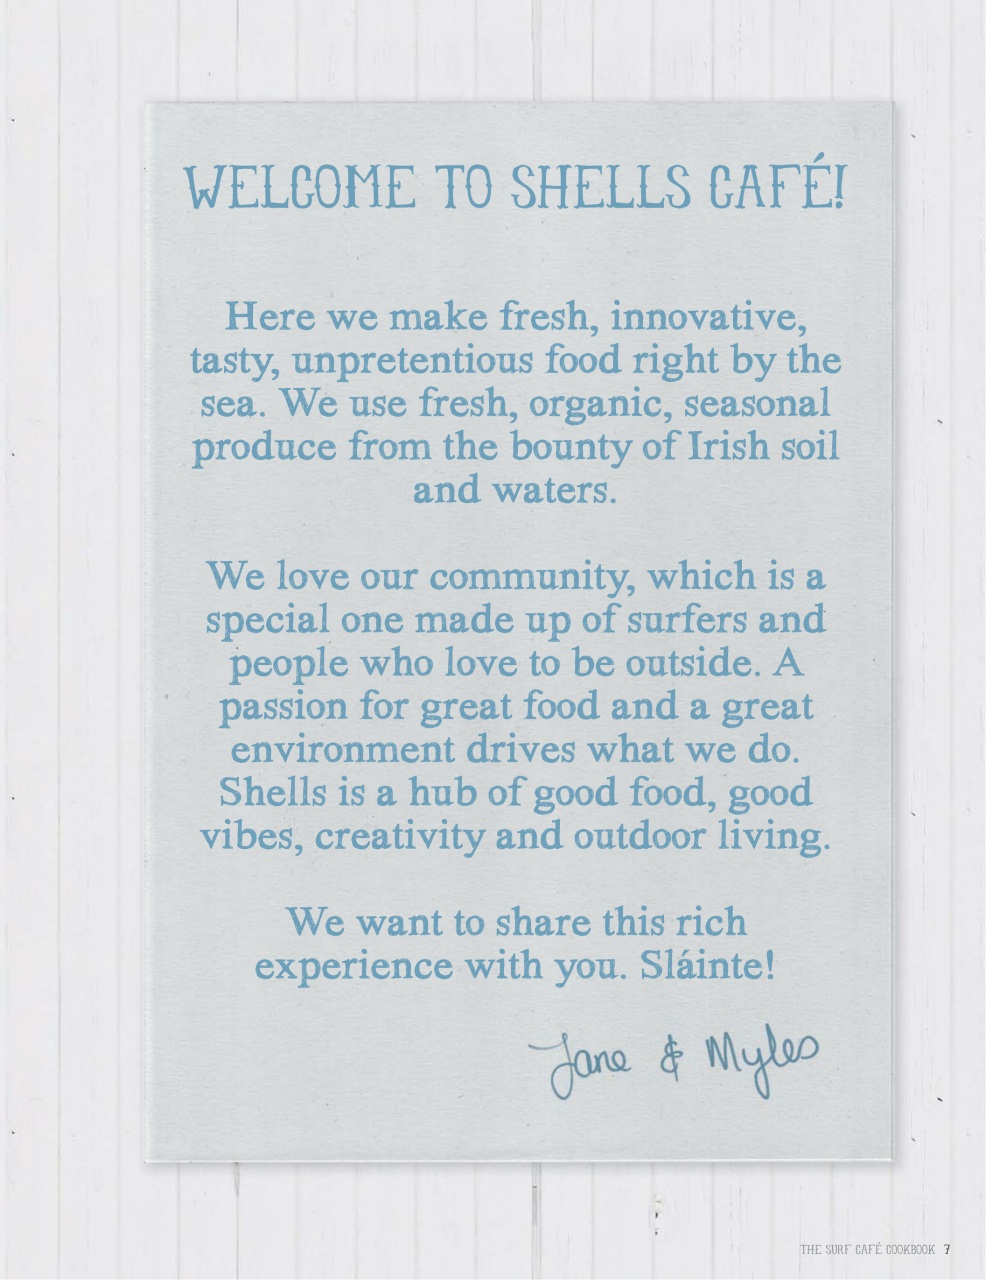 WELCOME TO SHELLS CAFÉ!
Here we make fresh, innovative,
tasty, unpretentious food right by the
sea. We use fresh, organic, seasonal
produce from the bounty of Irish soil
and waters.
We love our community, which is a
special one made up of surfers and
people who love to be outside. A
passion for great food and a great
environment drives what we do.
Shells is a hub of good food, good
vibes, creativity and outdoor living.
We want to share this rich
experience with you. Sláinte!
Jane & Myles
THE SURF CAFÉ COOKBOOK 7